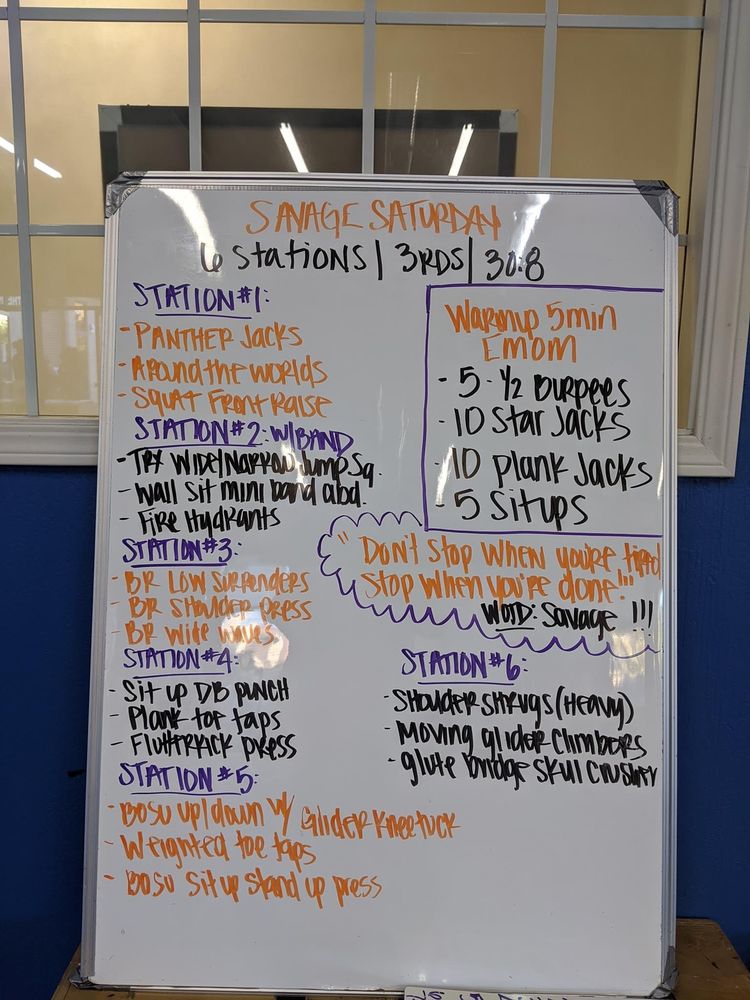 SAVAGE SATURDAY
6 Stations | 3RDS | 30:8
STATION #1:
- PANTHER JACKS
- Around the worlds
- Squat Front Raise
STATION #2: W/BAND
- TRX WIDE/NARROW Jump Sq.
- Wall Sit mini band abd.
- Fire Hydrants
STATION #3:
- BR LOW Surrenders
- BR Shoulder press
- BR wide waves
STATION #4:
- Sit up DB punch
- Plank toe taps
- Flutterkick press
STATION #5:
- Bosu up/down w/ Glider Kneetuck
- Weighted toe taps
- Bosu Sit up Stand up press
Warmup 5min
Emom
- 5 - 1/2 Burpees
- 10 Star Jacks
- 10 plank Jacks
- 5 Situps
"Don't Stop when you're tired
Stop when you're done!!"
WOTD: Savage !!!
STATION #6:
- Shoulder Shrugs (Heavy)
- Moving glider Climbers
- glute bridge Skul Crusher